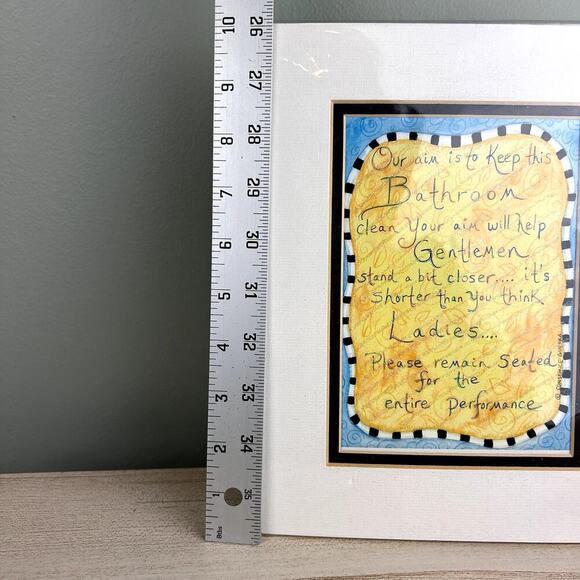 Our aim is to Keep this
Bathroom
clean Your aim will help
Gentlemen
stand a bit closer.... it's
shorter than You think.
Ladies....
Please remain Seated
for the
entire Performance
10 9 8 7 6 5 4 3 2 1
8ths
26 27 28 29 30 31 32 33 34 35